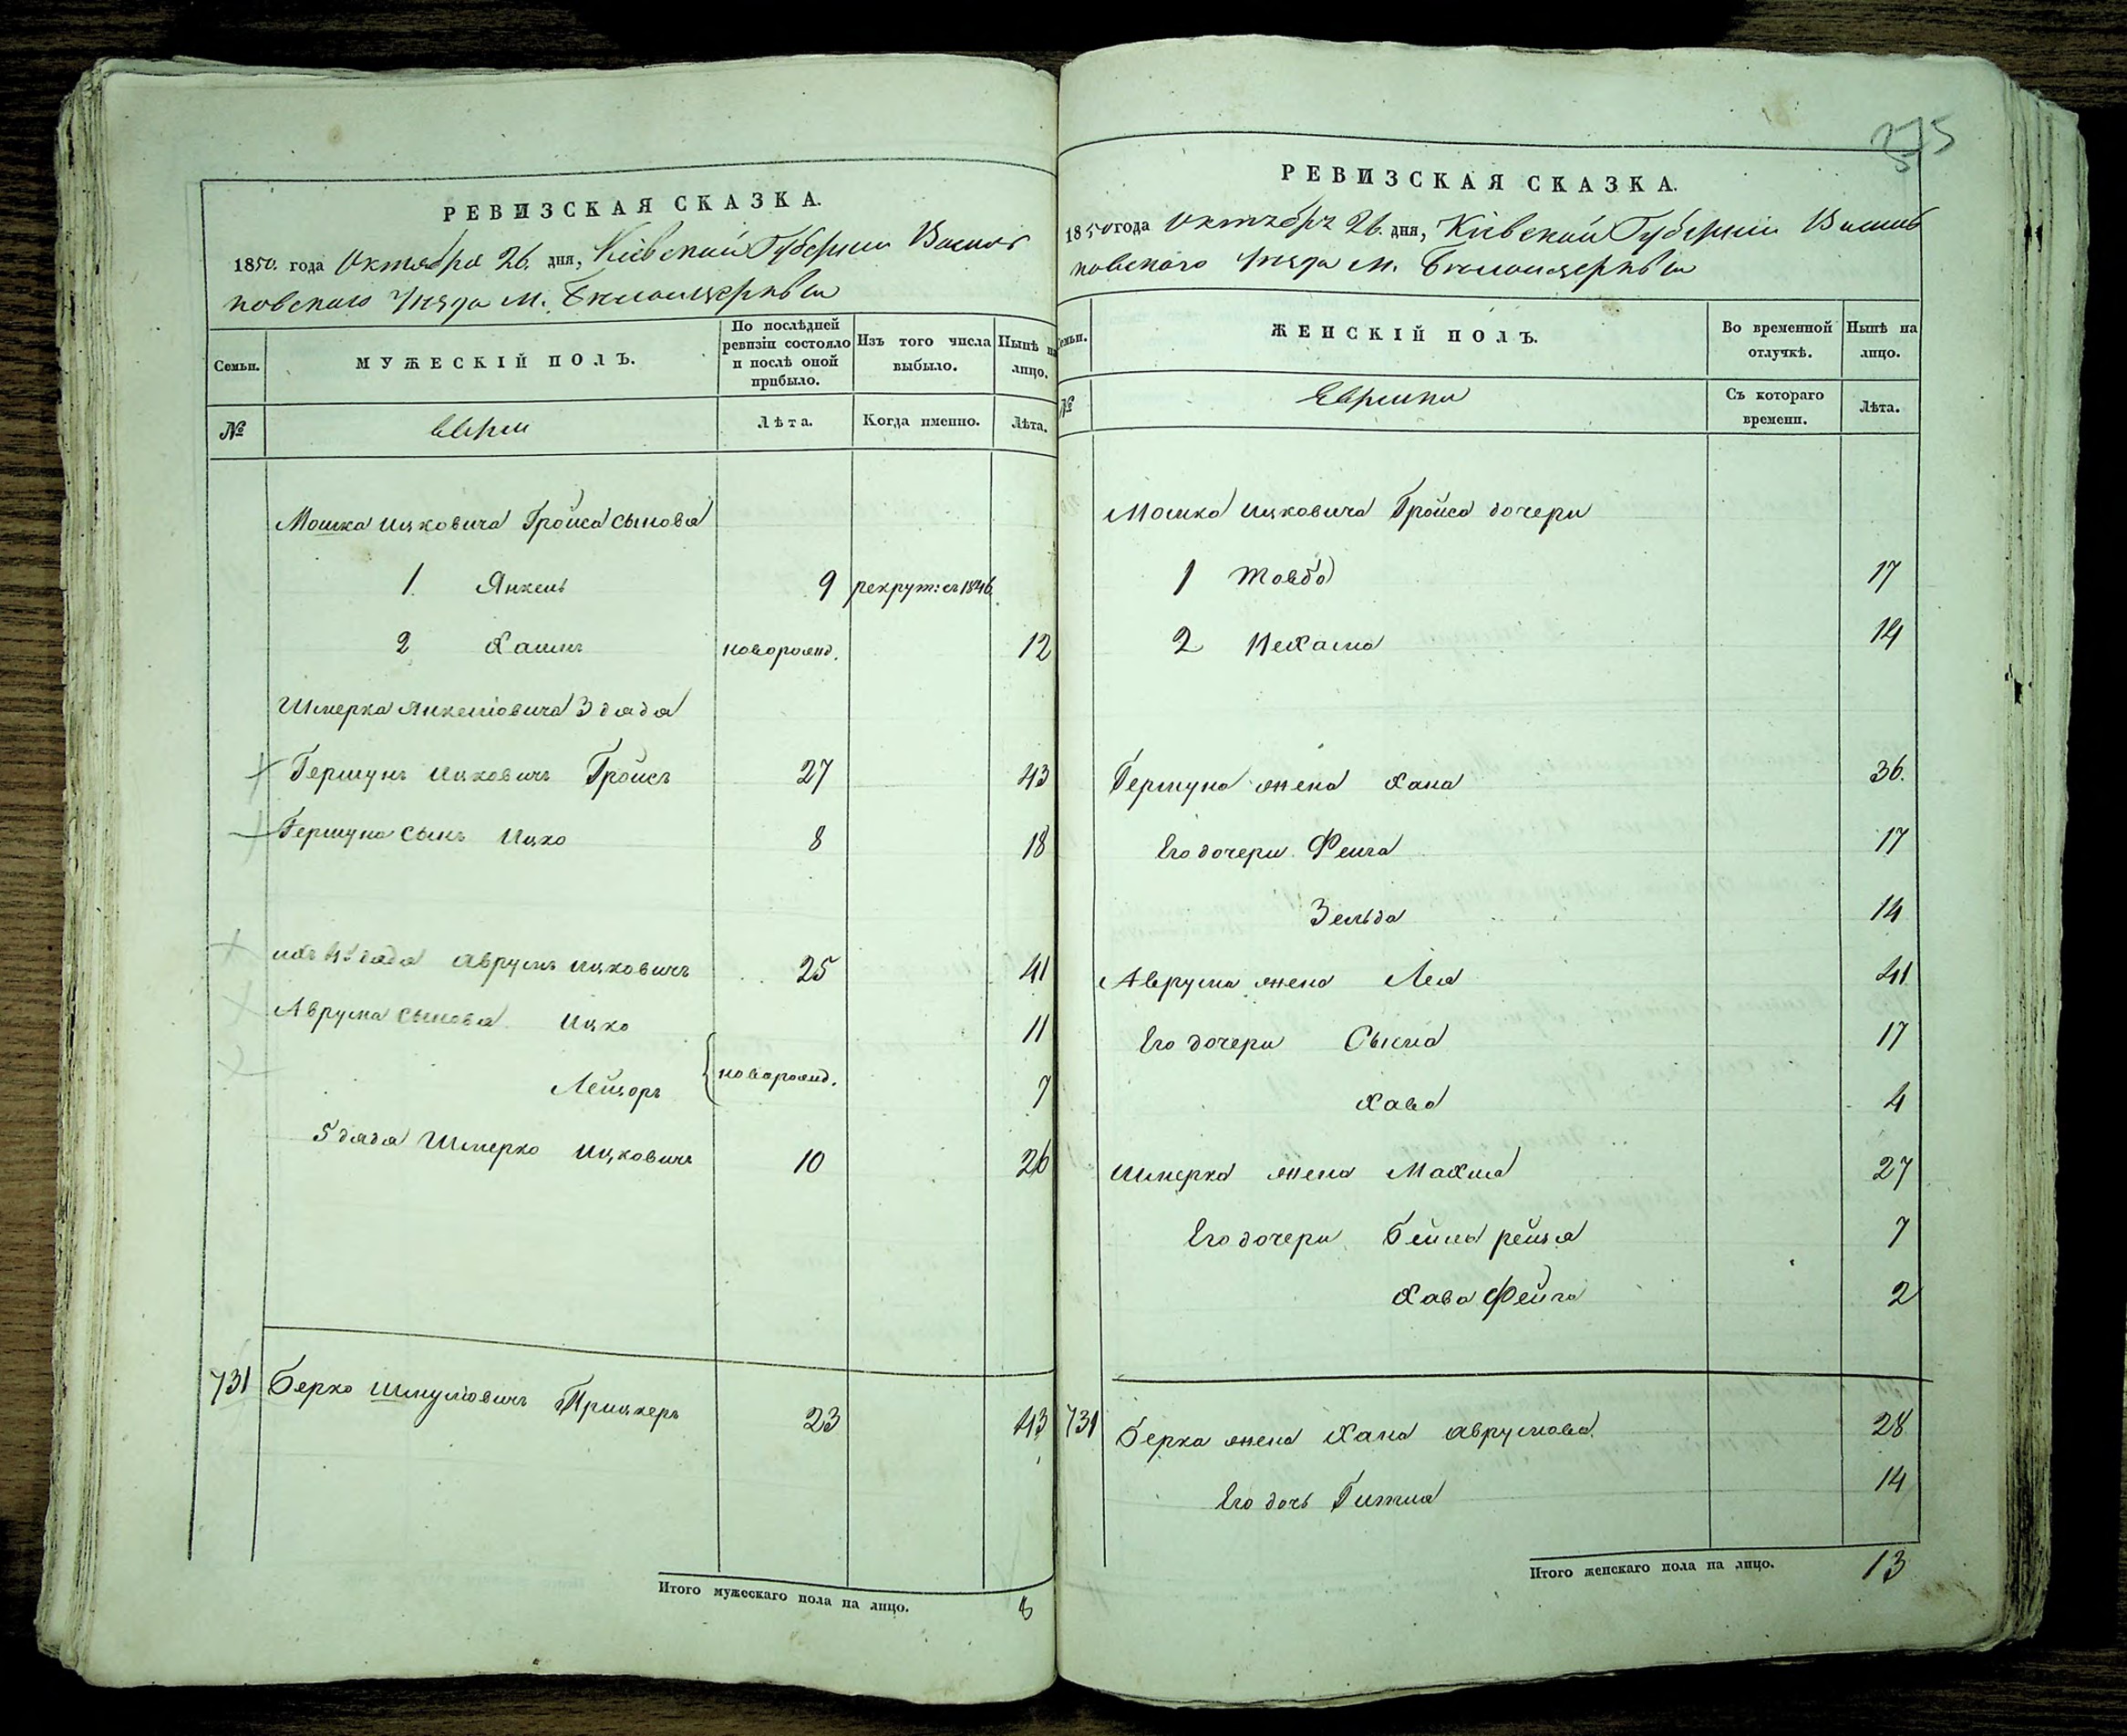 РЕВИЗСКАЯ СКАЗКА.
1850. года Октября 26. дня, Кіевской Губерніи Василь
ковскаго Уѣзда М. Бѣлоцеркви
Семьи.
МУЖЕСКІЙ ПОЛЪ.
По послѣдней ревизіи состояло и послѣ оной прибыло.
Изъ того числа выбыло.
Нынѣ на лицо.
№
Евреи
Лѣта.
Когда именно.
Лѣта.
Мошка Ицковича Гройса сыновья
1. Янкель 9 рекрут: съ 1846.
2 Хаимъ новорожд. 12
Шмерка Янкелiовича 3 дядя
Гершунъ Ицковичъ Гройсъ 27 43
Гершуна сынъ Ицко 8 18
ихъ 4й дядя Аврумъ Ицковичъ 25 41
Аврума сыновья Ицко 11
Лейзоръ новорожд. 7
5 дядя Шмерко Ицковичъ 10 26
731 Берко Шмулiовичъ Прицкеръ 23 43
Итого мужескаго пола на лицо. 8
375
РЕВИЗСКАЯ СКАЗКА.
1850 года Октября 26. дня, Кіевской Губерніи Василь
ковскаго Уѣзда М. Бѣлоцеркви
Семьи.
ЖЕНСКІЙ ПОЛЪ.
Во временной отлучкѣ.
Нынѣ на лицо.
№
Еврейки
Съ котораго времени.
Лѣта.
Мошка Ицковича Гройса дочери
1 Товба 17
2 Нехама 14
Гершуна жена Хана 36.
Его дочери Фейга 17
Зельда 14
Аврума жена Лея 41
Его дочери Сыма 17
Хава 4
Шмерка жена Махля 27
Его дочери Бейла рейзя 7
Хава Фейга 2
731 Берка жена Хана Аврумова. 28
Его дочь Гитля 14
Итого женскаго пола на лицо. 13